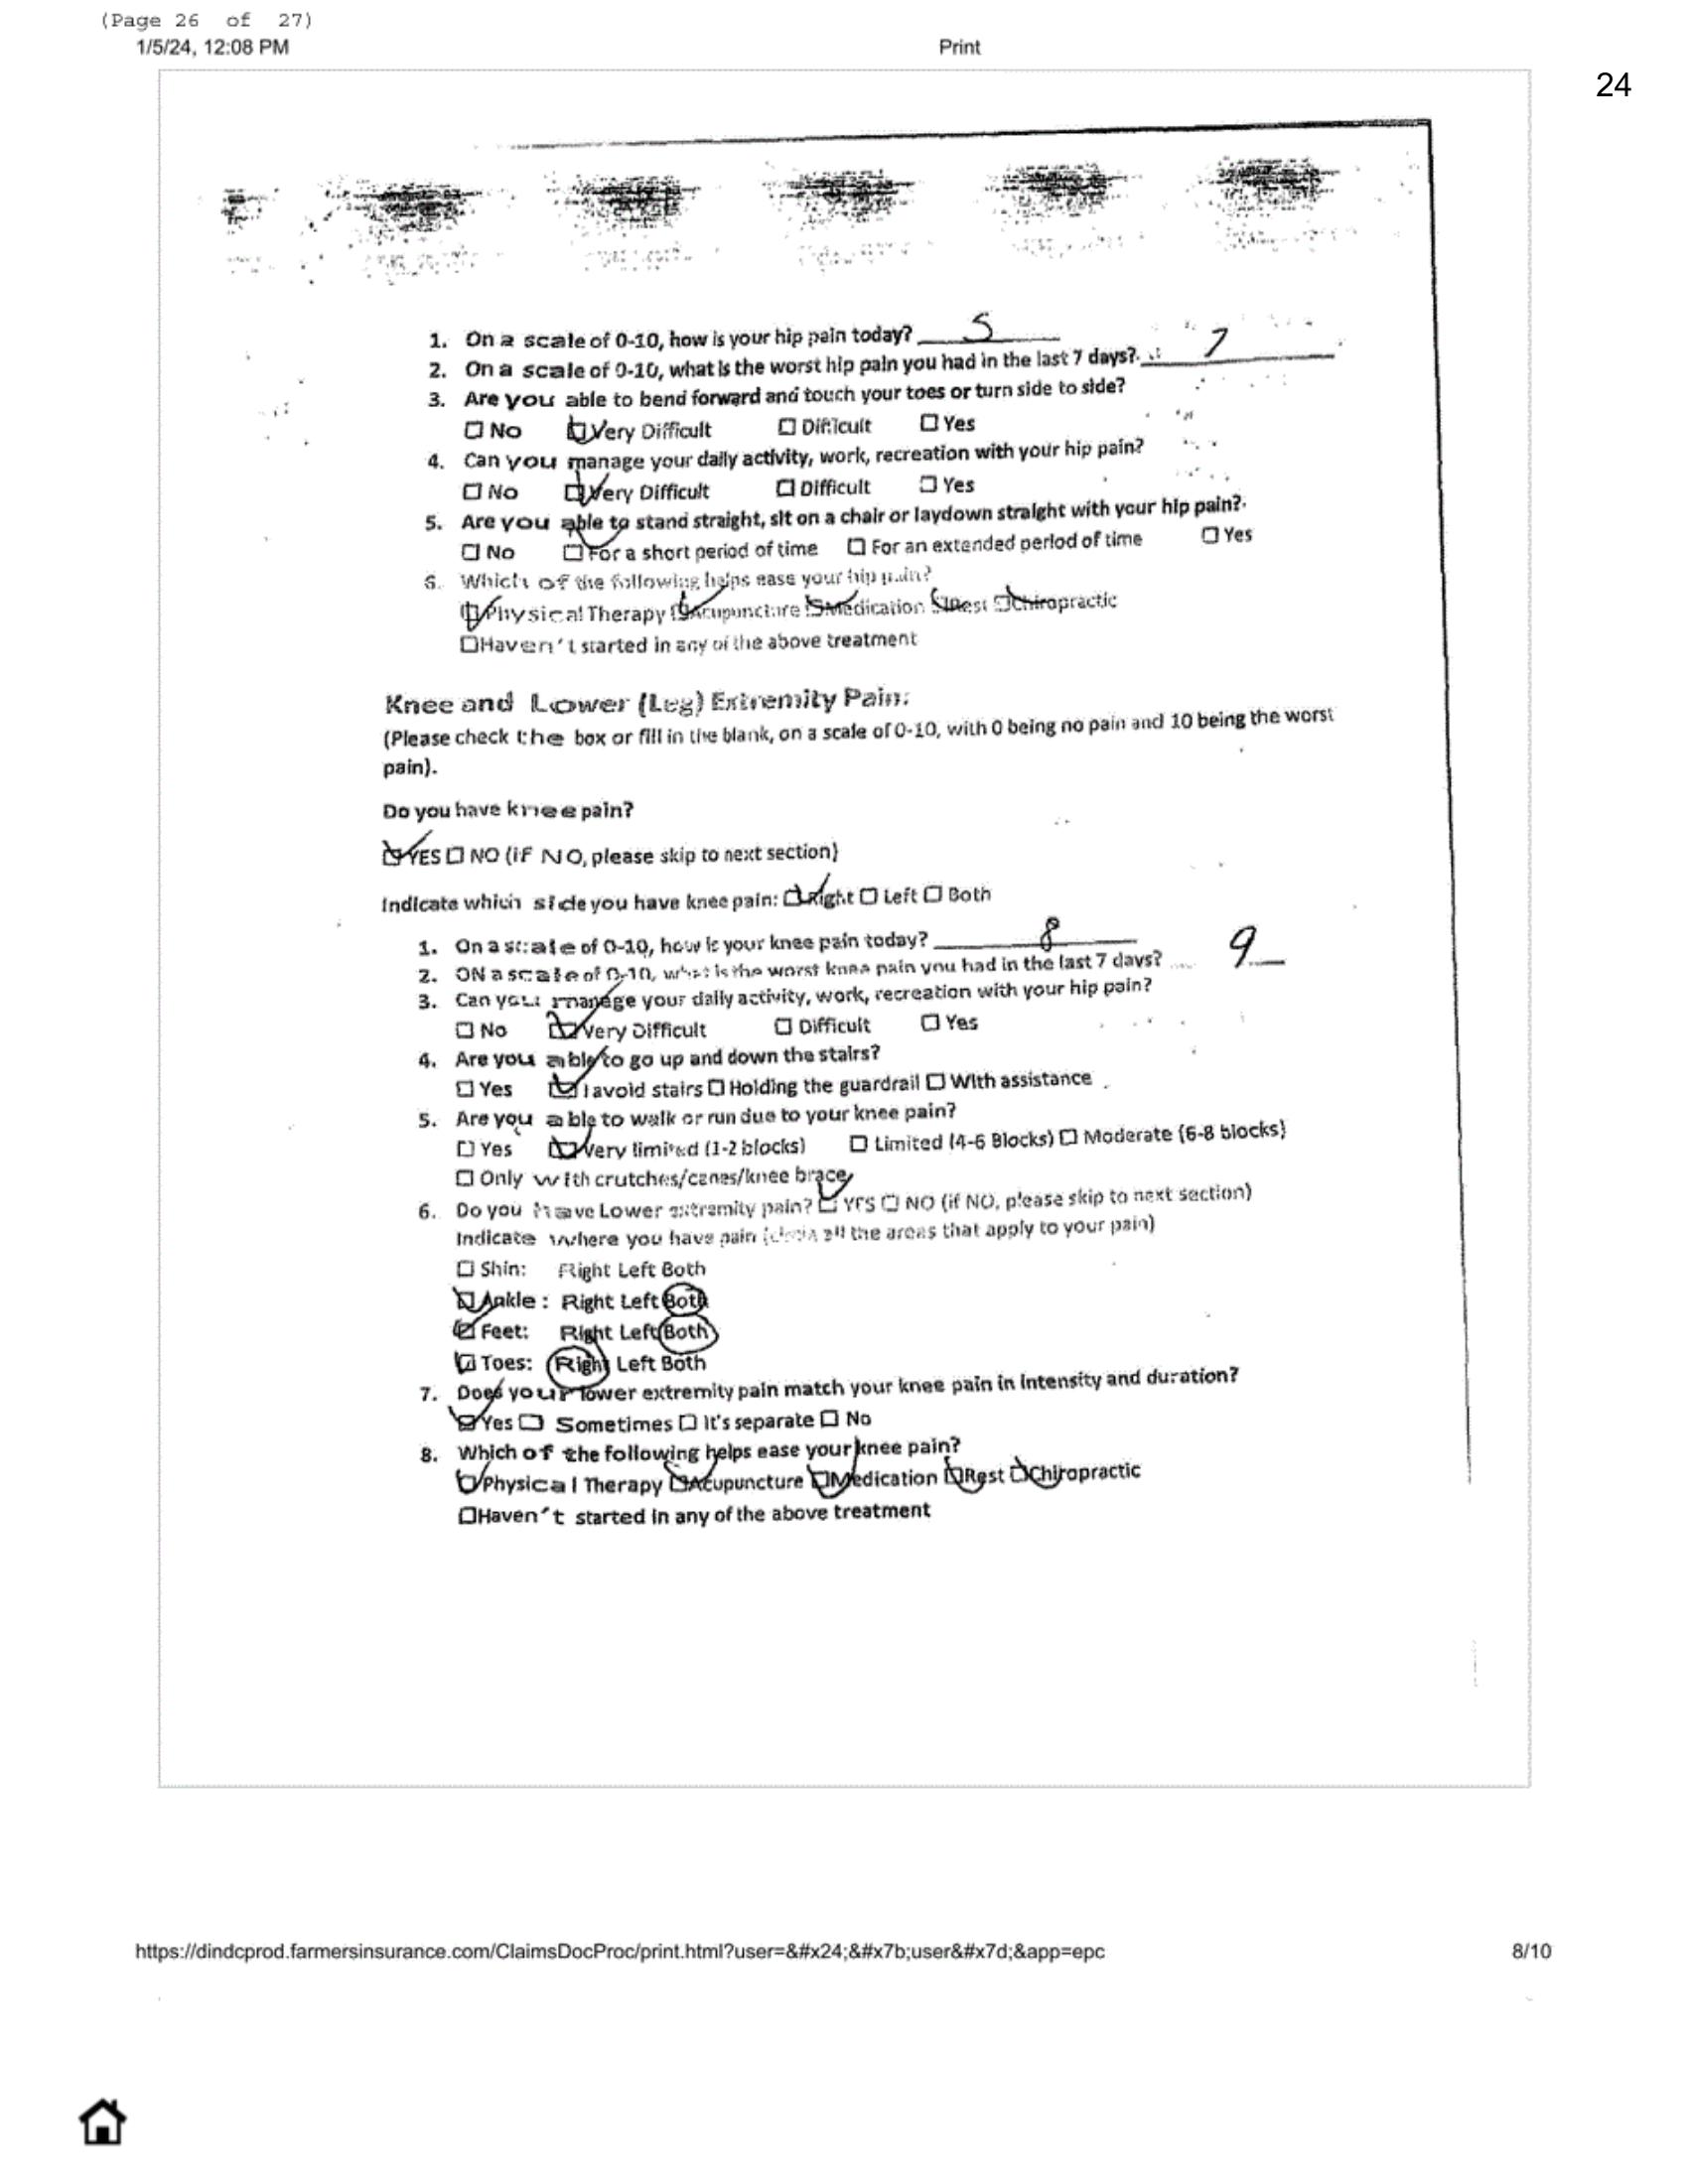 (Page 26 of 27)
1/5/24, 12:08 PM Print
24
1. On a scale of 0-10, how is your hip pain today? 5
2. On a scale of 0-10, what is the worst hip pain you had in the last 7 days? 7
3. Are you able to bend forward and touch your toes or turn side to side?
☐ No ☑ Very Difficult ☐ Difficult ☐ Yes
4. Can you manage your daily activity, work, recreation with your hip pain?
☐ No ☑ Very Difficult ☐ Difficult ☐ Yes
5. Are you able to stand straight, sit on a chair or laydown straight with your hip pain?
☐ No ☑ For a short period of time ☐ For an extended period of time ☐ Yes
6. Which of the following helps ease your hip pain?
☑ Physical Therapy ☑ Acupuncture ☑ Medication ☑ Rest ☑ Chiropractic
☐ Haven't started in any of the above treatment
Knee and Lower (Leg) Extremity Pain:
(Please check the box or fill in the blank, on a scale of 0-10, with 0 being no pain and 10 being the worst
pain).
Do you have knee pain?
☑ YES ☐ NO (if NO, please skip to next section)
Indicate which side you have knee pain: ☑ Right ☐ Left ☐ Both
1. On a scale of 0-10, how is your knee pain today? 8
2. ON a scale of 0-10, what is the worst knee pain you had in the last 7 days? 9
3. Can you manage your daily activity, work, recreation with your hip pain?
☐ No ☑ Very Difficult ☐ Difficult ☐ Yes
4. Are you able to go up and down the stairs?
☐ Yes ☑ I avoid stairs ☐ Holding the guardrail ☐ With assistance
5. Are you able to walk or run due to your knee pain?
☐ Yes ☑ Very limited (1-2 blocks) ☐ Limited (4-6 Blocks) ☐ Moderate (6-8 blocks)
☐ Only with crutches/canes/knee brace
6. Do you have Lower extremity pain? ☑ YES ☐ NO (if NO, please skip to next section)
Indicate where you have pain all the areas that apply to your pain)
☐ Shin: Right Left Both
☑ Ankle: Right Left Both
☑ Feet: Right Left Both
☑ Toes: Right Left Both
7. Does your lower extremity pain match your knee pain in intensity and duration?
☑ Yes ☐ Sometimes ☐ It's separate ☐ No
8. Which of the following helps ease your knee pain?
☑ Physical Therapy ☑ Acupuncture ☑ Medication ☑ Rest ☑ Chiropractic
☐ Haven't started in any of the above treatment
https://dindcprod.farmersinsurance.com/ClaimsDocProc/print.html?user=&#x24;&#x7b;user&#x7d;&app=epc 8/10